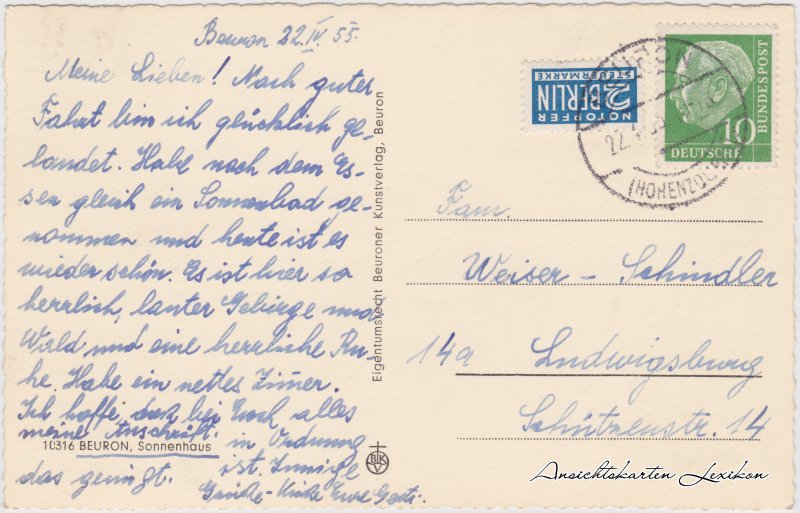 Beuron 22.IV.55.
Meine Lieben! Nach guter
Fahrt bin ich glücklich ge-
landet. Habe nach dem Es-
sen gleich ein Sonnenbad ge-
nommen und heute ist es
wieder schön. Es ist hier so
herrlich, lauter Gebirge und
Wald und eine herrliche Ru-
he. Habe ein nettes Zimmer.
Ich hoffe, dass bei Euch alles
in Ordnung
ist. Innige
Eure
meine Anschrift:
10316 BEURON, Sonnenhaus
das genügt.
Eigentumsrecht Beuroner Kunstverlag, Beuron
BKV
NOTOPFER
2 BERLIN
STEUERMARKE
BEURON
22.4.55
(HOHENZOLL
10
DEUTSCHE
BUNDESPOST
Fam.
Weiser - Schindler
14a Ludwigsburg
Schützenstr. 14
Ansichtskarten Lexikon